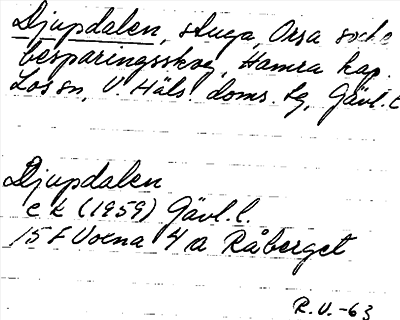 Djupdalen, stuga, Orsa socke
besparingsskog, Hamra kap.
Los sn, V. Häls. doms. tg, Gävl. l
Djupdalen
ek (1959) Gävl. l.
15 F Voxna 4 a Råberget
R.V.-63